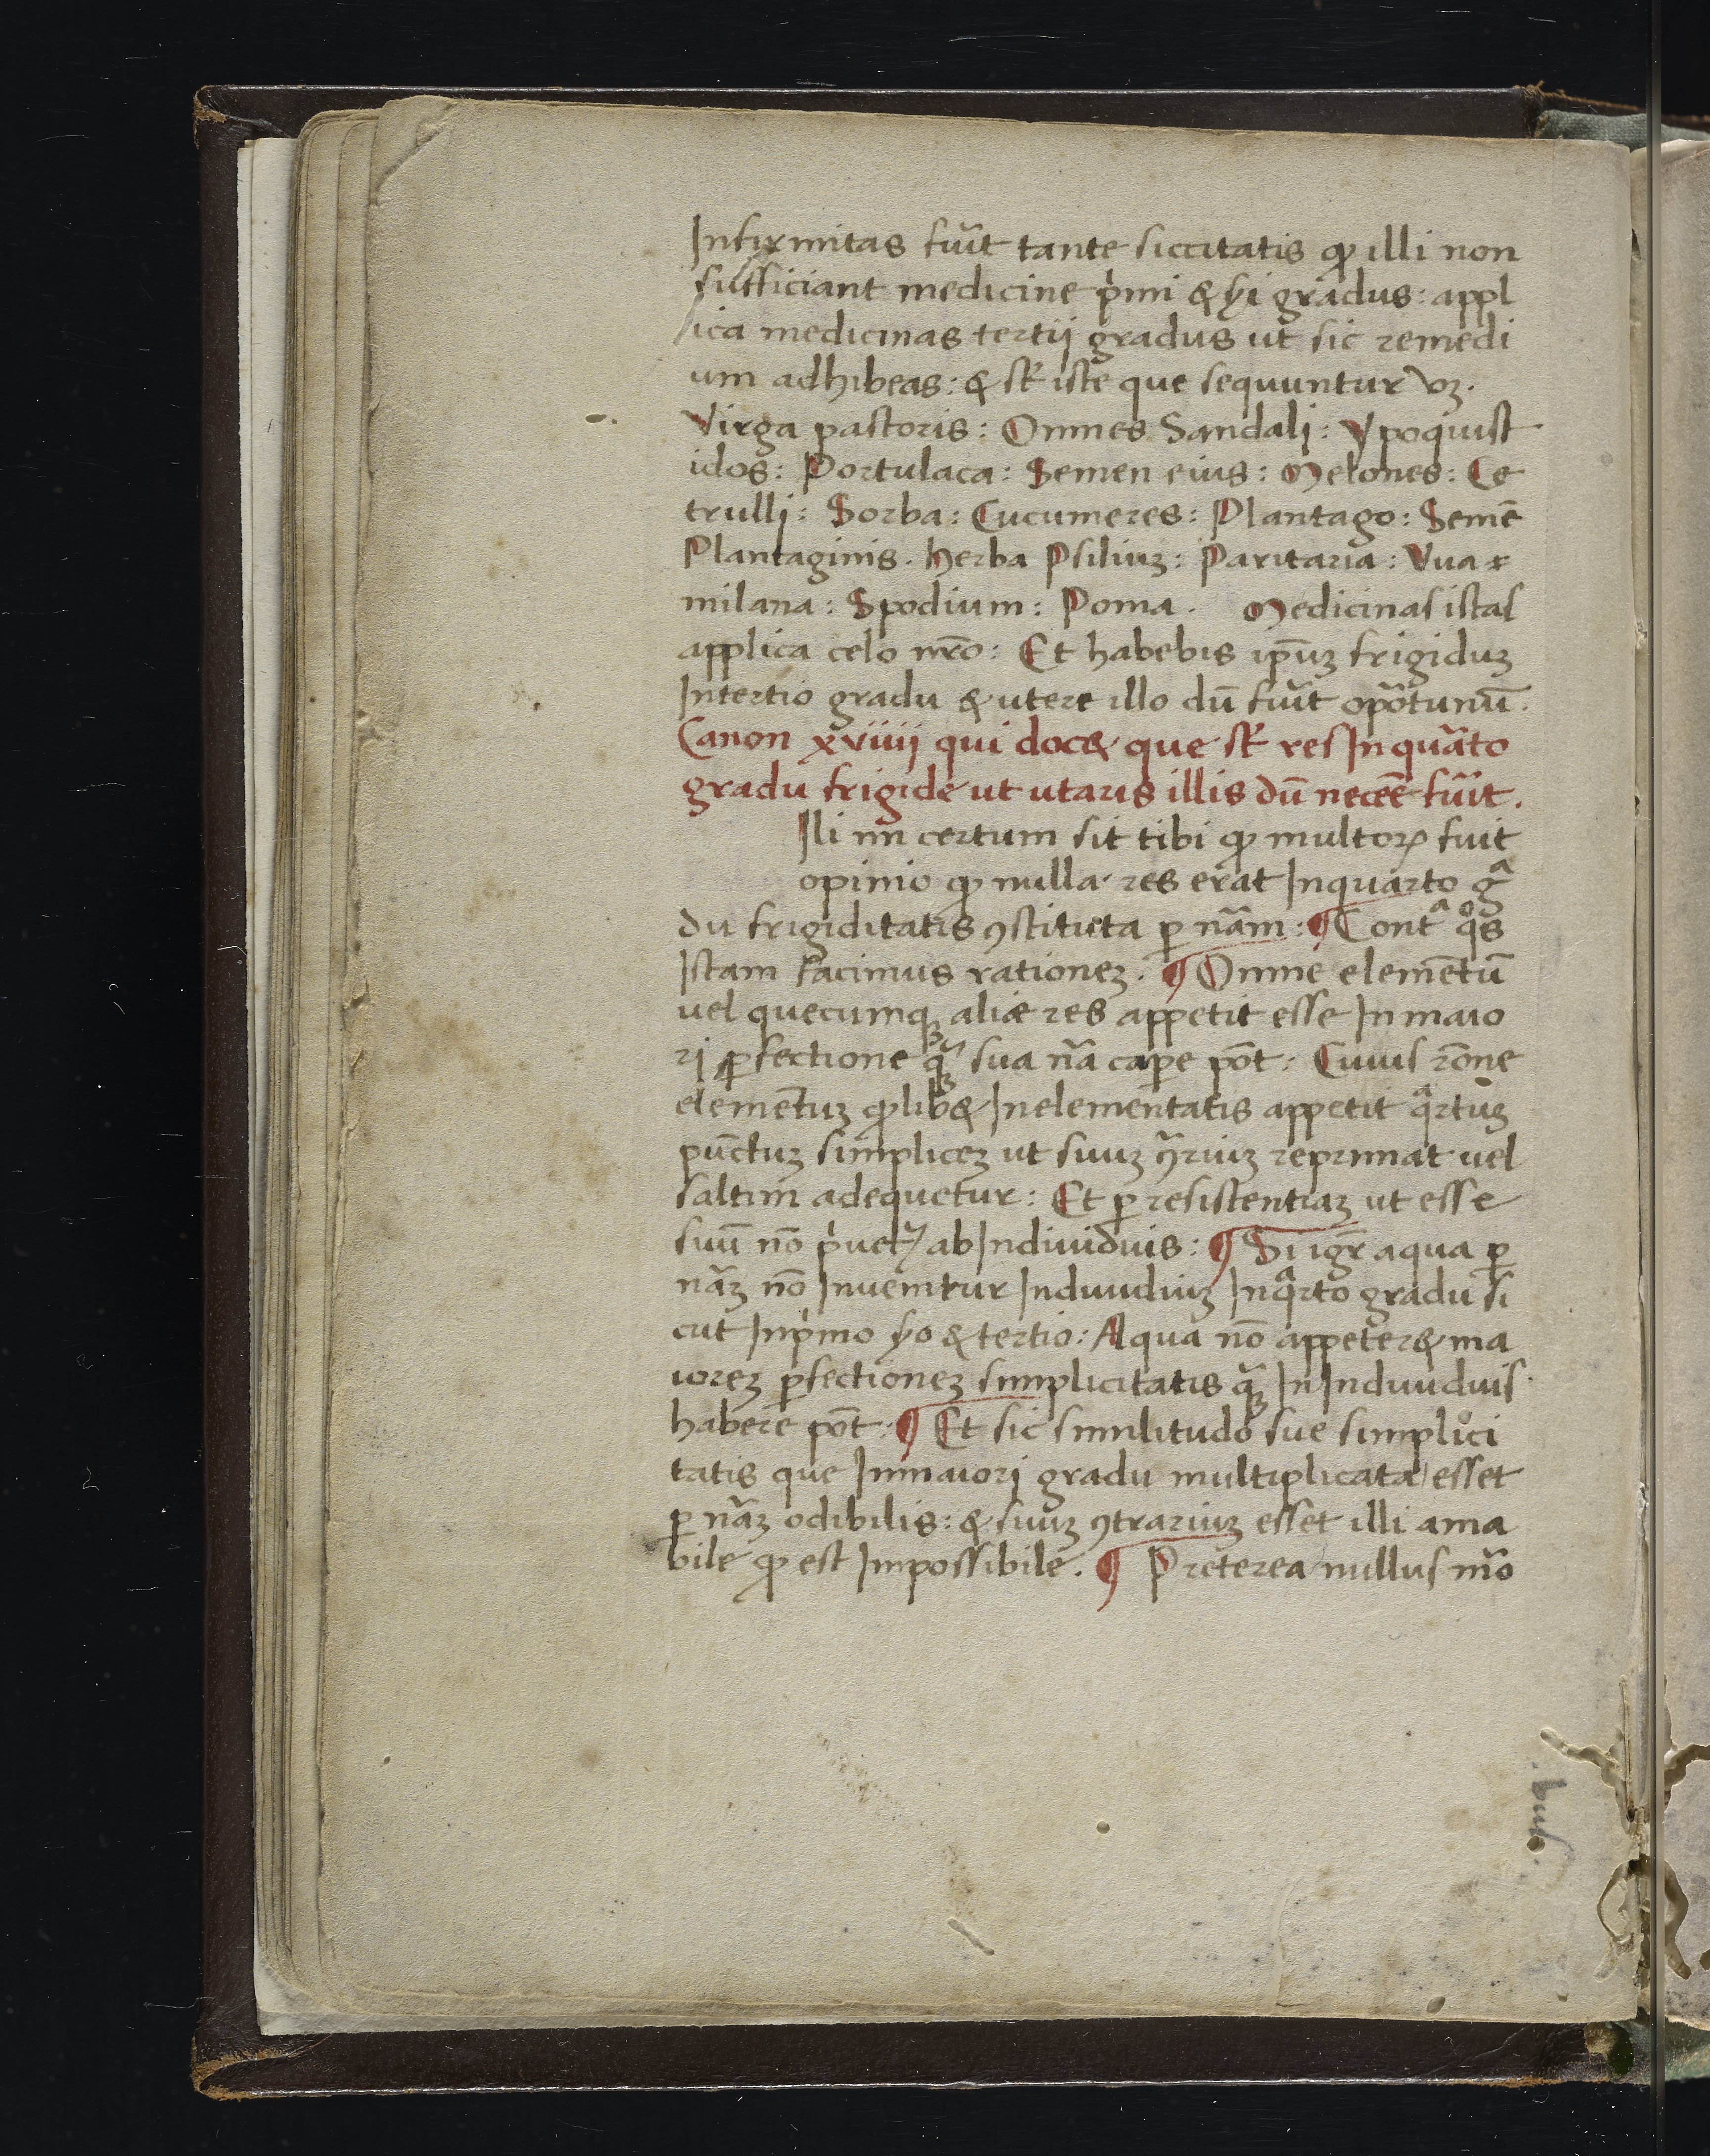 Infirmitas fu͛it tante siccitatis ꝙ illi non
sufficiant medicine pͥmi & ẜi gradus: appl
ica medicinas tertij gradus ut sic remedi
um adhibeas: & st̄ iste que sequuntur vꝫ.
Virga pastoris: Omnes Sandali: Ypoquist
idos: Portulaca: Semen eius: Melones: Ce
trulli: Sorba: Cucumeres: Plantago: Semē
Plantaginis. Herba Psiliuꝫ: Paritaria: Vua
milana: Spodium: Poma. Medicinas istas
applica celo nr̄o: Et habebis ip̄uꝫ frigiduꝫ
Intertio gradu & utere illo dū fu͛it opo͛tunū.
Canon xviiii qui doc& que st̄ res In qua͛to
gradu frigide ut utaris illis dū neceē fu͛it.
Ili mi certum sit tibi ꝙ multoꝝ fuit
opinio ꝙ nulla res erat Inquarto gᵃ
du frigiditatis ꝯstituta ꝑ nām: ¶ Contᵃ qͦs
Istam facimus rationeꝫ. ¶ Omne elementū
uel quecumqꝫ aliæ res appetit esse In maio
ri ꝑfectione qꝫ̄ sua nā caꝑe pōt: Cuius rōne
elementuꝫ ꝙlib& Inelementatis appetit qᵃrtuꝫ
punctuꝫ simpliceꝫ ut suuꝫ ꝯ͛riuꝫ reprimat uel
saltim adequetur: Et ꝑ resistentiaꝫ ut esse
suū nō pͥuet᷑ ab Indiuiduis: ¶ Si igr̄ aqua ꝑ
nāꝫ nō Inuenitur Indiuiduiꝫ Inqᵃrto gradu si
cut Inpͥmo ẜo & tertio: Aqua nō appeter& ma
ioreꝫ ꝑfectioneꝫ simplicitatis qꝫ̄ In Indiuiduis
habere pōt. ¶ Et sic similitudo sue simplici
tatis que Inmaiori gradu multiplicata esset
ꝑ nāꝫ odibilis: & suuꝫ ꝯtrariuꝫ esset illi ama
bile ꝙ est Impossibile. ¶ Preterea nullus nr̄o